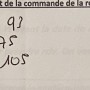 t de la commande de la r
93
75
105